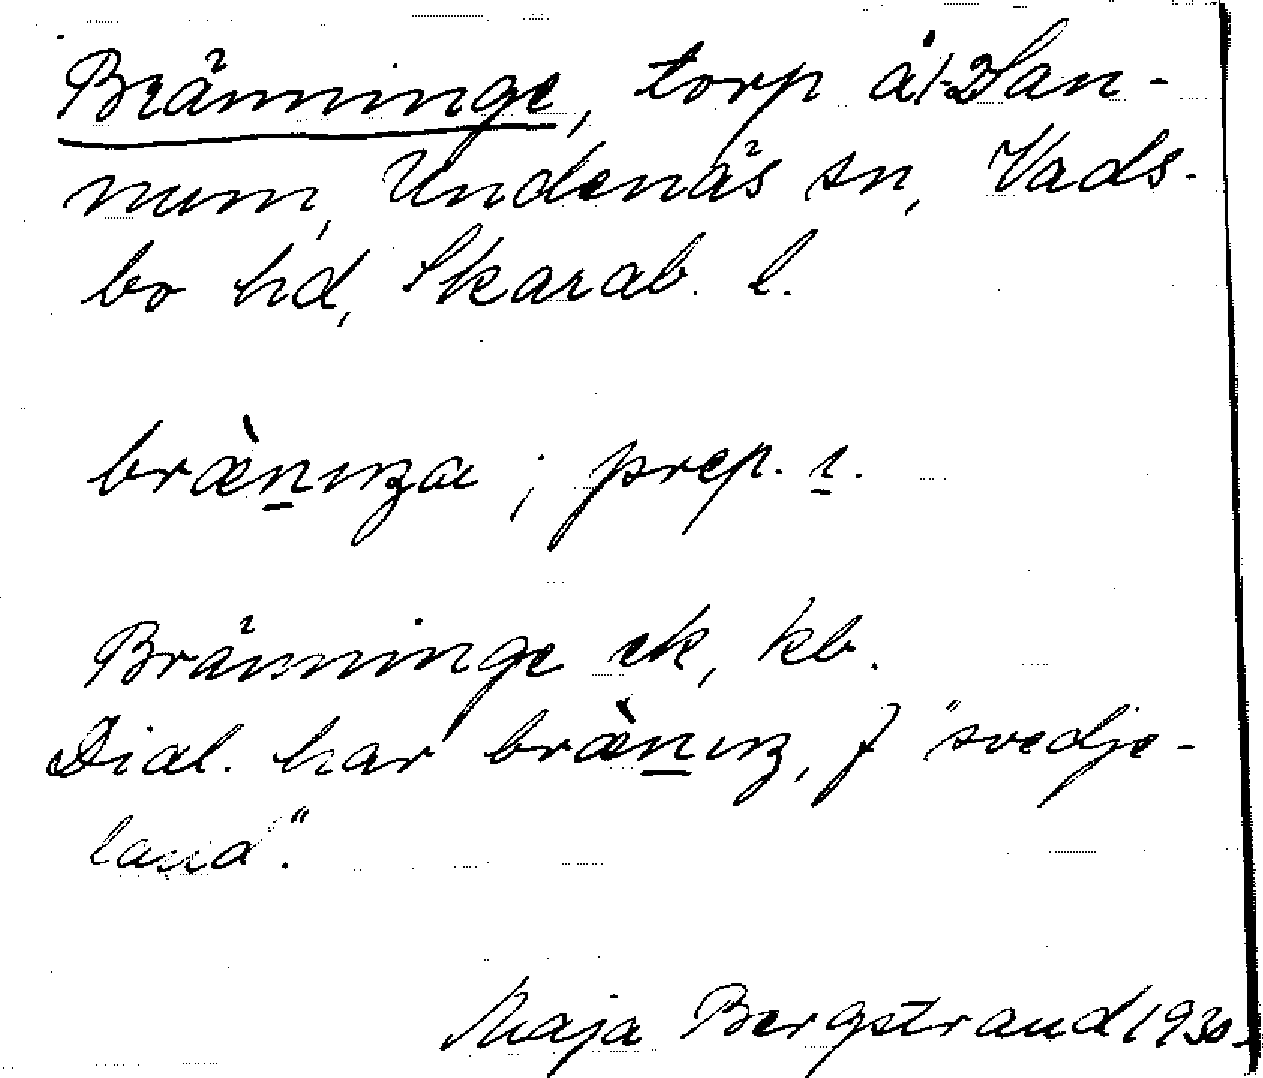 Bränninge, torp å 1/2 San-
num, Undenäs sn, Vads-
bo hd, Skarab. l.
bræ̀nıŋa ; prep. ı.
Bränninge ek, kb.
Dial. har bræ̀nıŋ, f "svedje-
land".
Maja Bergstrand 1930.